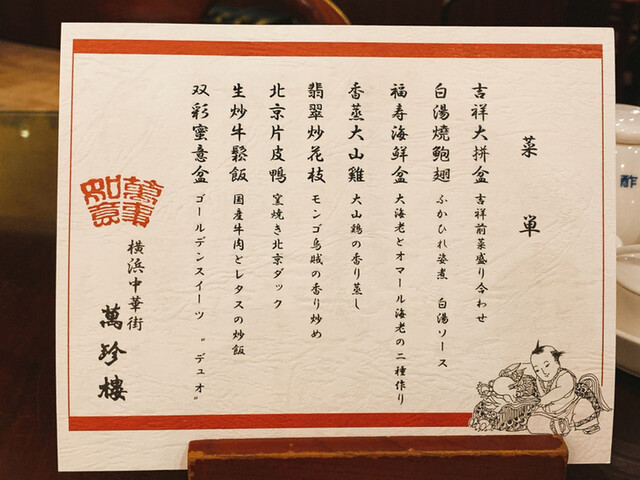 菜単
吉祥大拼盆 吉祥前菜盛り合わせ
白湯燒鮑翅 ふかひれ姿煮 白湯ソース
福寿海鮮盆 大海老とオマール海老の二種作り
香蒸大山雞 大山鶏の香り蒸し
翡翠炒花枝 モンゴ烏賊の香り炒め
北京片皮鴨 窯焼き北京ダック
生炒牛鬆飯 国産牛肉とレタスの炒飯
双彩蜜意盆 ゴールデンスイーツ "デュオ"
萬事如意
横浜中華街
萬珍樓
酢